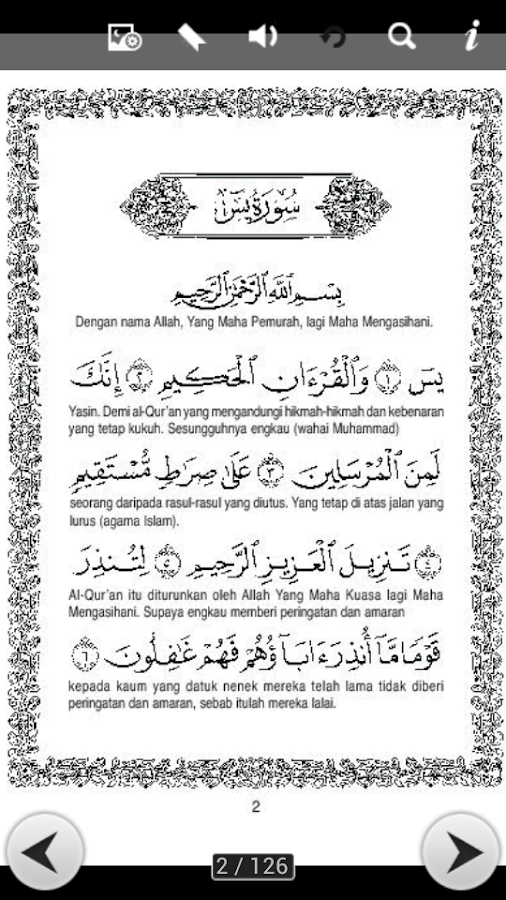 سُورَةُ يسٓ
بِسْمِ ٱللَّهِ ٱلرَّحْمَٰنِ ٱلرَّحِيمِ
Dengan nama Allah, Yang Maha Pemurah, lagi Maha Mengasihani.
يسٓ ١ وَٱلْقُرْءَانِ ٱلْحَكِيمِ ٢ إِنَّكَ
Yasin. Demi al-Qur'an yang mengandungi hikmah-hikmah dan kebenaran
yang tetap kukuh. Sesungguhnya engkau (wahai Muhammad)
لَمِنَ ٱلْمُرْسَلِينَ ٣ عَلَىٰ صِرَٰطٍ مُّسْتَقِيمٍ
seorang daripada rasul-rasul yang diutus. Yang tetap di atas jalan yang
lurus (agama Islam).
٤ تَنزِيلَ ٱلْعَزِيزِ ٱلرَّحِيمِ ٥ لِتُنذِرَ
Al-Qur'an itu diturunkan oleh Allah Yang Maha Kuasa lagi Maha
Mengasihani. Supaya engkau memberi peringatan dan amaran
قَوْمًا مَّآ أُنذِرَ ءَابَآؤُهُمْ فَهُمْ غَٰفِلُونَ ٦
kepada kaum yang datuk nenek mereka telah lama tidak diberi
peringatan dan amaran, sebab itulah mereka lalai.
2
2 / 126